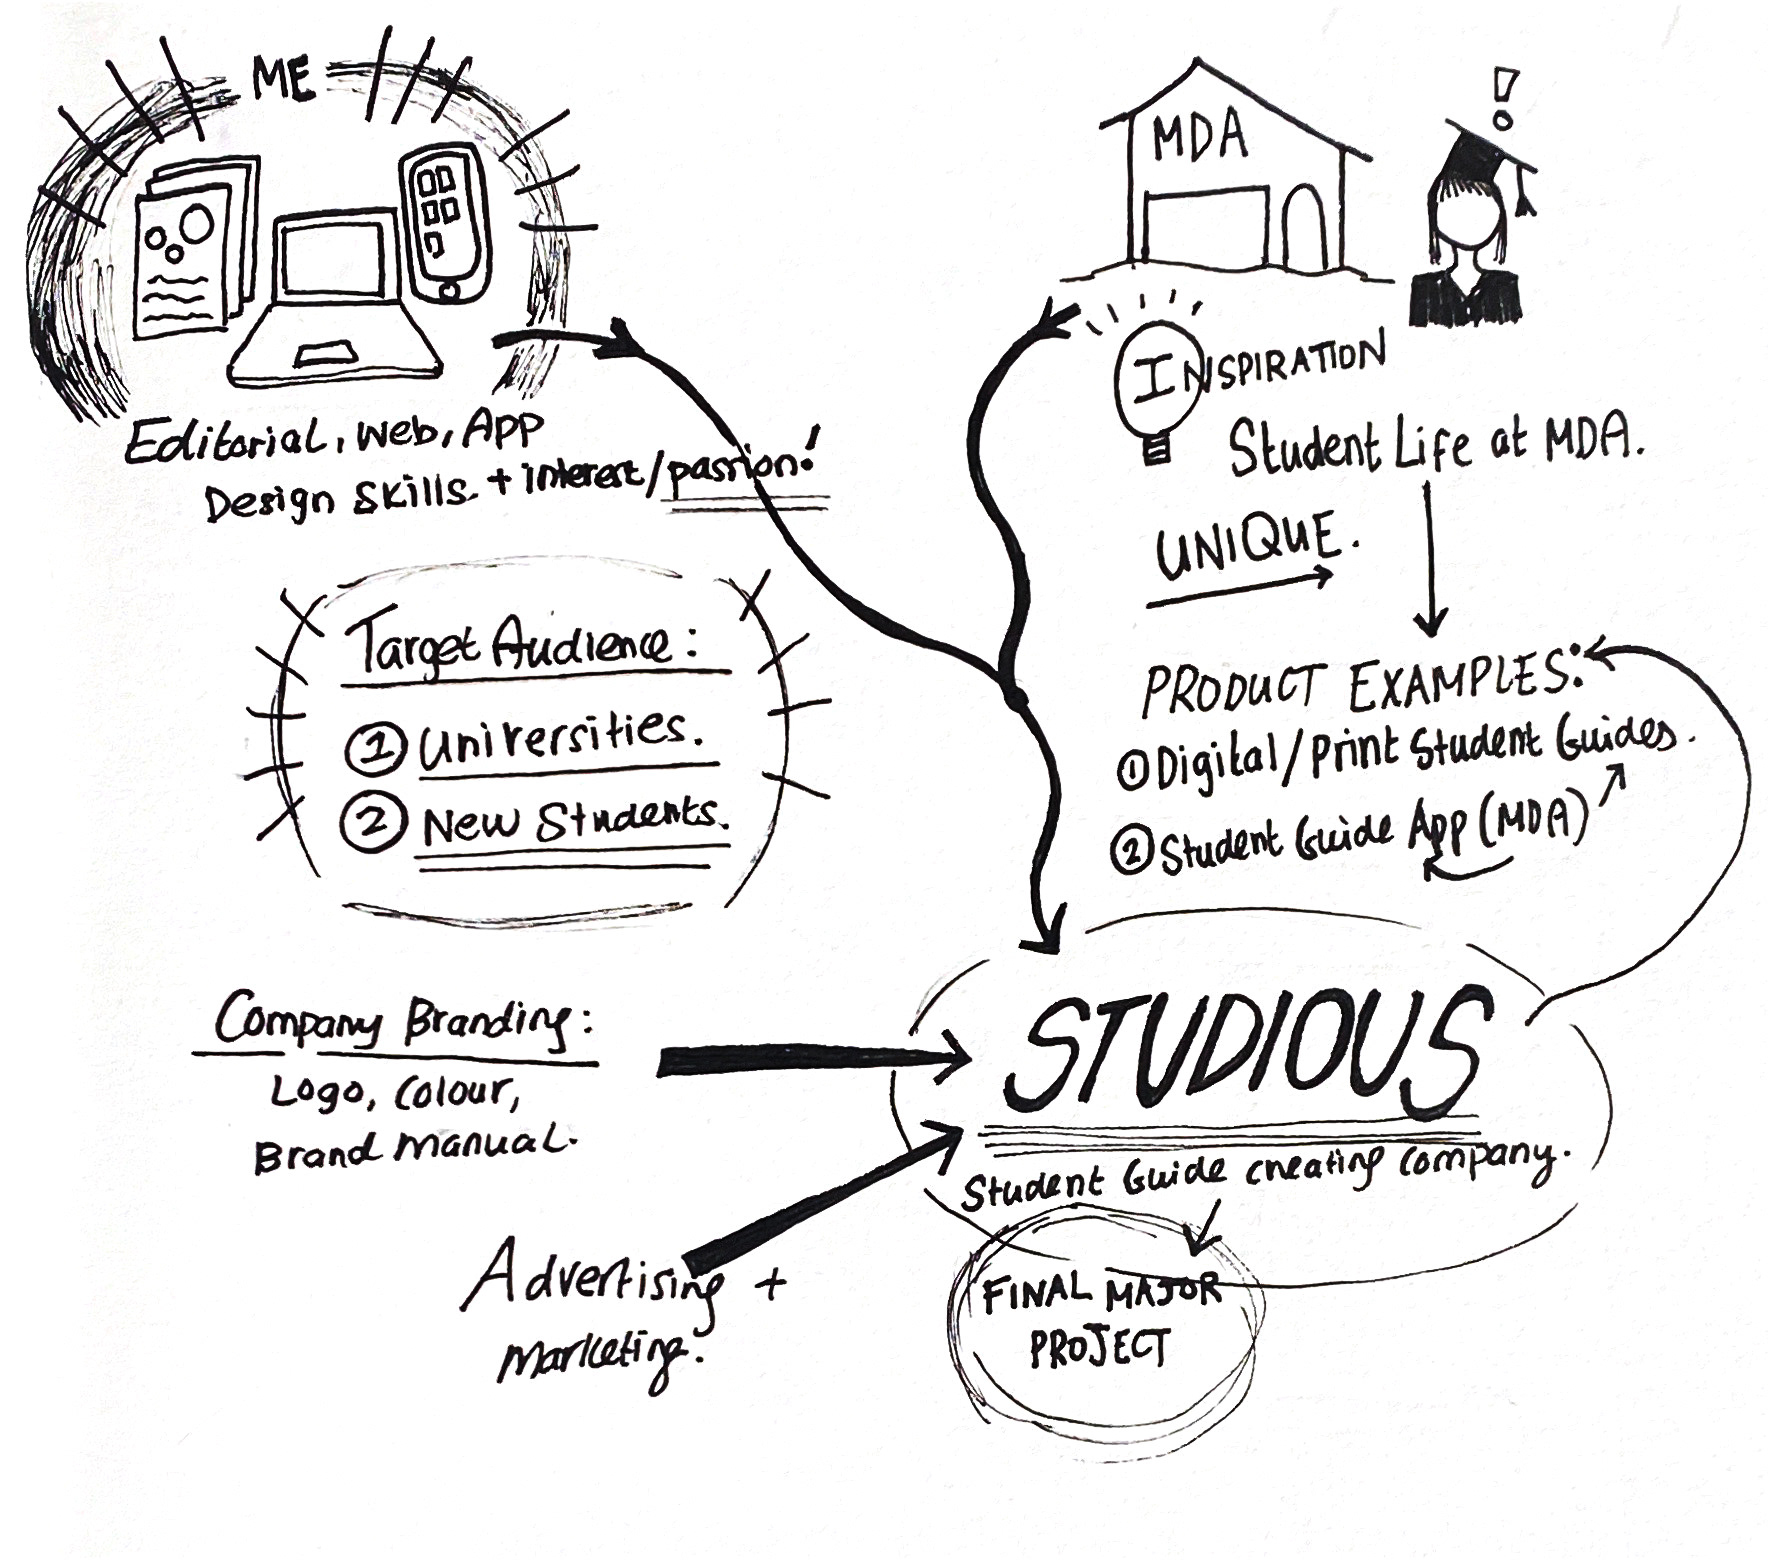 ME
Editorial, Web, App
Design Skills. + interest/passion!
MDA
!
INSPIRATION
Student Life at MDA.
UNIQUE.
Target Audience:
① Universities.
② New Students.
PRODUCT EXAMPLES:
① Digital/Print Student Guides.
② Student Guide App (MDA)
Company Branding:
Logo, Colour,
Brand Manual.
Advertising +
Marketing.
STUDIOUS
Student Guide creating company.
FINAL MAJOR
PROJECT